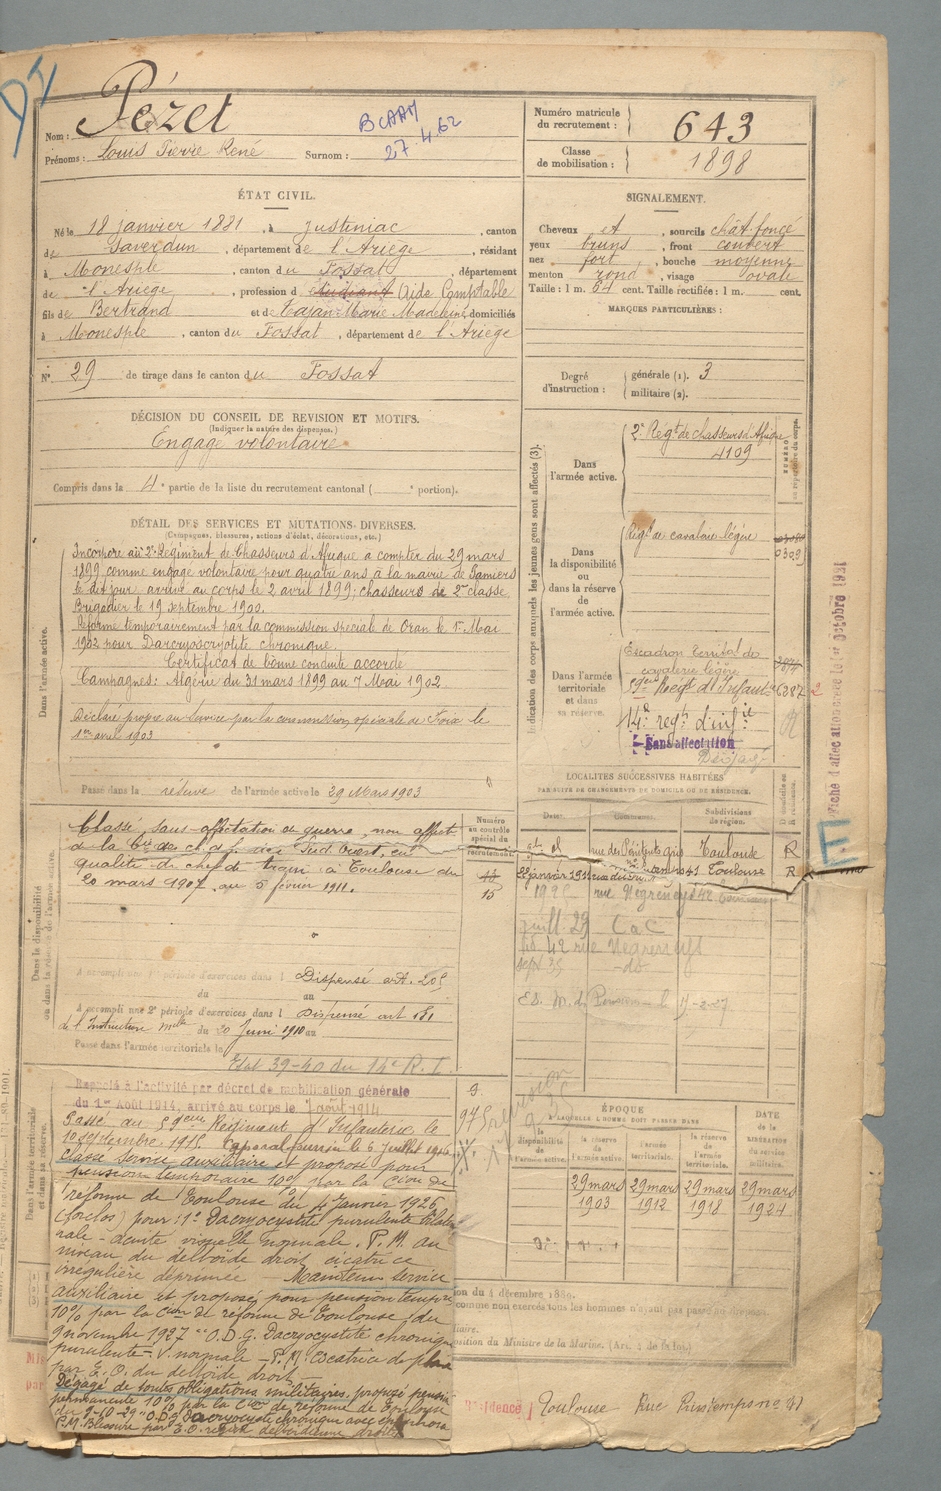 Nom : Pézet
BCAAM
27.4.62
Prénoms : Louis Pierre René Surnom :
Numéro matricule du recrutement : 643
Classe de mobilisation : 1898
ÉTAT CIVIL.
Né le 18 janvier 1881, à Justiniac, canton
de Saverdun, département de l'Ariège, résidant
à Monesple, canton du Fossat, département
de l'Ariège, profession d étudiant (Aide Comptable
fils de Bertrand et de Cajan Marie Madeleine, domiciliés
à Monesple, canton du Fossat, département de l'Ariège
N° 29 de tirage dans le canton du Fossat
SIGNALEMENT.
Cheveux et, sourcils chât. foncé
yeux bruns, front couvert
nez fort, bouche moyenne
menton rond, visage ovale
Taille : 1 m. 64 cent. Taille rectifiée : 1 m. cent.
MARQUES PARTICULIÈRES :
Degré d'instruction : générale (1). 3
militaire (2).
DÉCISION DU CONSEIL DE REVISION ET MOTIFS.
(Indiquer la nature des dispenses.)
Engagé volontaire
Compris dans la 4e partie de la liste du recrutement cantonal ( e portion).
DÉTAIL DES SERVICES ET MUTATIONS DIVERSES.
(Campagnes, blessures, actions d'éclat, décorations, etc.)
Dans l'armée active.
Incorporé au 2e Régiment de Chasseurs d'Afrique à compter du 29 mars
1899 comme engagé volontaire pour quatre ans à la mairie de Pamiers
le dit jour arrivé au corps le 2 avril 1899; chasseurs de 2me classe
Brigadier le 19 septembre 1900.
Réformé temporairement par la commission spéciale de Oran le 1er Mai
1902 pour Darcryoscryotite chronique.
Certificat de bonne conduite accordé
Campagnes: Algérie du 31 mars 1899 au 7 Mai 1902
Déclaré propre au service par la commission spéciale de Foix le
1er avril 1903
Passé dans la réserve de l'armée active le 29 Mars 1903
Indication des corps auxquels les jeunes gens sont affectés (3).
NUMÉRO au répertoire du corps.
Dans l'armée active.
2e Regt de chasseurs d'Afrique
4109
Dans la disponibilité ou dans la réserve de l'armée active.
Regt de cavalerie légère
0309
Dans l'armée territoriale et dans sa réserve.
Escadron Territal de
cavalerie légère
59eme Regt d'Infantie 6387 2
14e regt d'infie
Sans affectation
Dégagé
R
Fiche d'affectation créée le 1er octobre 1931
LOCALITÉS SUCCESSIVES HABITÉES
PAR SUITE DE CHANGEMENTS DE DOMICILE OU DE RÉSIDENCE.
Dates. Communes. Subdivisions de région.
Toulouse R
Toulouse R
1925 rue Negreneys 42
juill. 29 CaC
42 rue Negreneys
35 -do-
Dans la disponibilité ou dans la réserve de l'armée active.
Numéro au contrôle spécial du recrutement.
15
Classé sans affectation de guerre, non affecté
de la Cie des ch. de f. du Sud Ouest, en
qualité de chef de train à Toulouse du
20 mars 1907 au 5 février 1911.
A accompli une 1re période d'exercices dans l Dispensé art. 205
du au
A accompli une 2e période d'exercices dans l Dispensé art 181
de l'Instruction Mlle du 20 Juin 1910 au
Passé dans l'armée territoriale le
Etat 39-40 du 14e R.I.
Dans l'armée territoriale et dans sa réserve.
Rappelé à l'activité par décret de mobilisation générale
du 1er Août 1914, arrivé au corps le 7 août 1914
Passé au 59eme Régiment d'Infanterie le
10 septembre 1915
Classé service auxiliaire et proposé pour
pension temporaire 10% par la Cion de
réforme de Toulouse du 4 Janvier 1926
(forclos) pour : 1° Dacryocystite purulente bilaté
rale - acuité visuelle normale. P.M. au
niveau du deltoïde droit cicatrice
irrégulière déprimée - Maintenu service
auxiliaire et proposé pour pension tempre
10% par la Cion de réforme de Toulouse du
9 novembre 1927 O.D.G. Dacryocystite chronique
purulente - V. normale - P.M: Cicatrice de plaie
par E.O. du deltoïde droit
Dégagé de toutes obligations militaires. proposé pension
permanente 10% par la Cion de réforme de Toulouse
du 9-10-29: O.D.G Dacryocystite chronique avec épiphora
P.M. Blessure par E.O. région deltoïdienne droite
ÉPOQUE À LAQUELLE L'HOMME DOIT PASSER DANS
la disponibilité de l'armée active.
la réserve de l'armée active.
l'armée territoriale.
la réserve de l'armée territoriale.
DATE de la LIBÉRATION du service militaire.
29 mars 1903
29 mars 1912
29 mars 1918
29 mars 1924
Résidence Toulouse Rue Printemps no 41